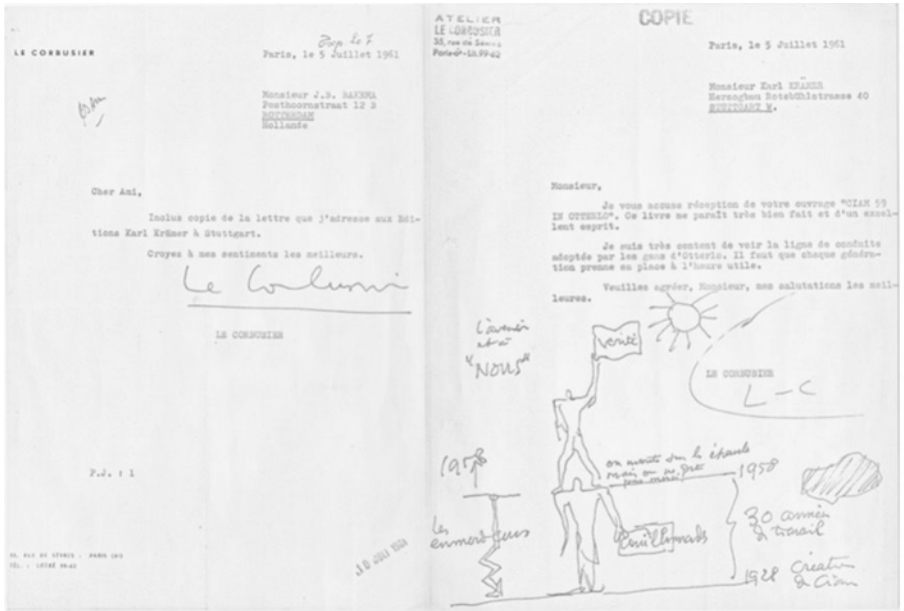 LE CORBUSIER
Paris, le 5 Juillet 1961
Monsieur J.B. BAKEMA
Posthoornstraat 12 B
ROTTERDAM
Hollande
Cher Ami,
Inclus copie de la lettre que j'adresse aux Edi-
tions Karl Krämer à Stuttgart.
Croyez à mes sentiments les meilleurs.
Le Corbusier
LE CORBUSIER
P.J. : 1
35, RUE DE SÈVRES - PARIS (6e)
TÉL. : LITTRÉ 99-62
ATELIER
LE CORBUSIER
35, rue de Sèvres
COPIE
Paris, le 5 Juillet 1961
Monsieur Karl KRÄMER
Rotebühlstrasse 40
STUTTGART W.
Monsieur,
Je vous accuse réception de votre ouvrage "CIAM 59
IN OTTERLO". Ce livre me paraît très bien fait et d'un excel-
lent esprit.
Je suis très content de voir la ligne de conduite
adoptée par les gens d'Otterlo. Il faut que chaque généra-
tion prenne sa place à l'heure utile.
Veuillez agréer, Monsieur, mes salutations les meil-
leures.
LE CORBUSIER
L-C
"NOUS"
vérité
on monte sur les épaules
mais on ne dit
pas merci
1958
1958
Les
emmerdeurs
30 années
de travail
1928 création
de Ciam